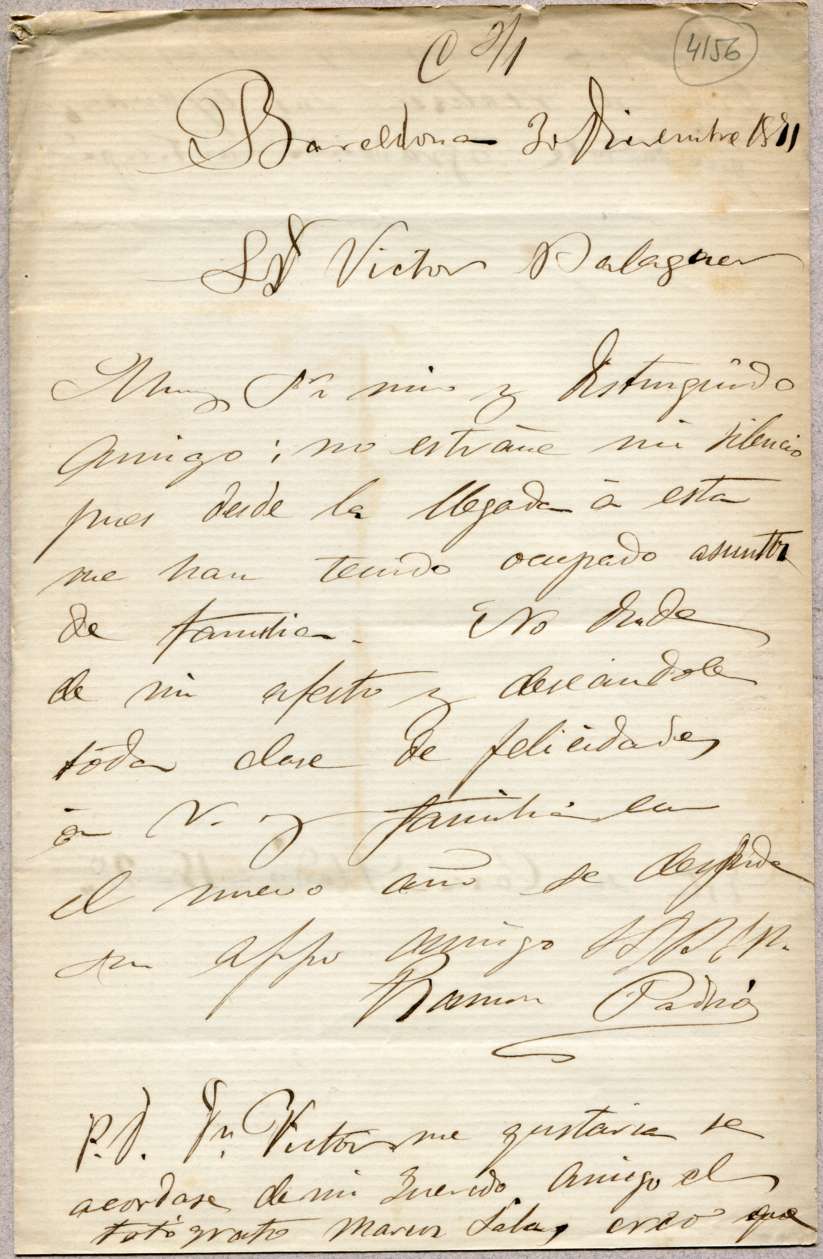 C 2/1
4156
Barcelona 30 Diciembre 1881
Sr D Victor Balaguer
Muy Sr mio y distinguido
amigo; no estrañe mi silencio
pues desde la llegada á esta
me han tenido ocupado asuntos
de familia. No dude
de mi afecto y deseándole
toda clase de felicidades
á V. y familia en
el nuevo año se despide
su affo amigo
Ramon Padró
P.D. Dn. Victor me gustaria se
acordase de mi querido amigo el
fotógrafo Marcos Sala, creo que